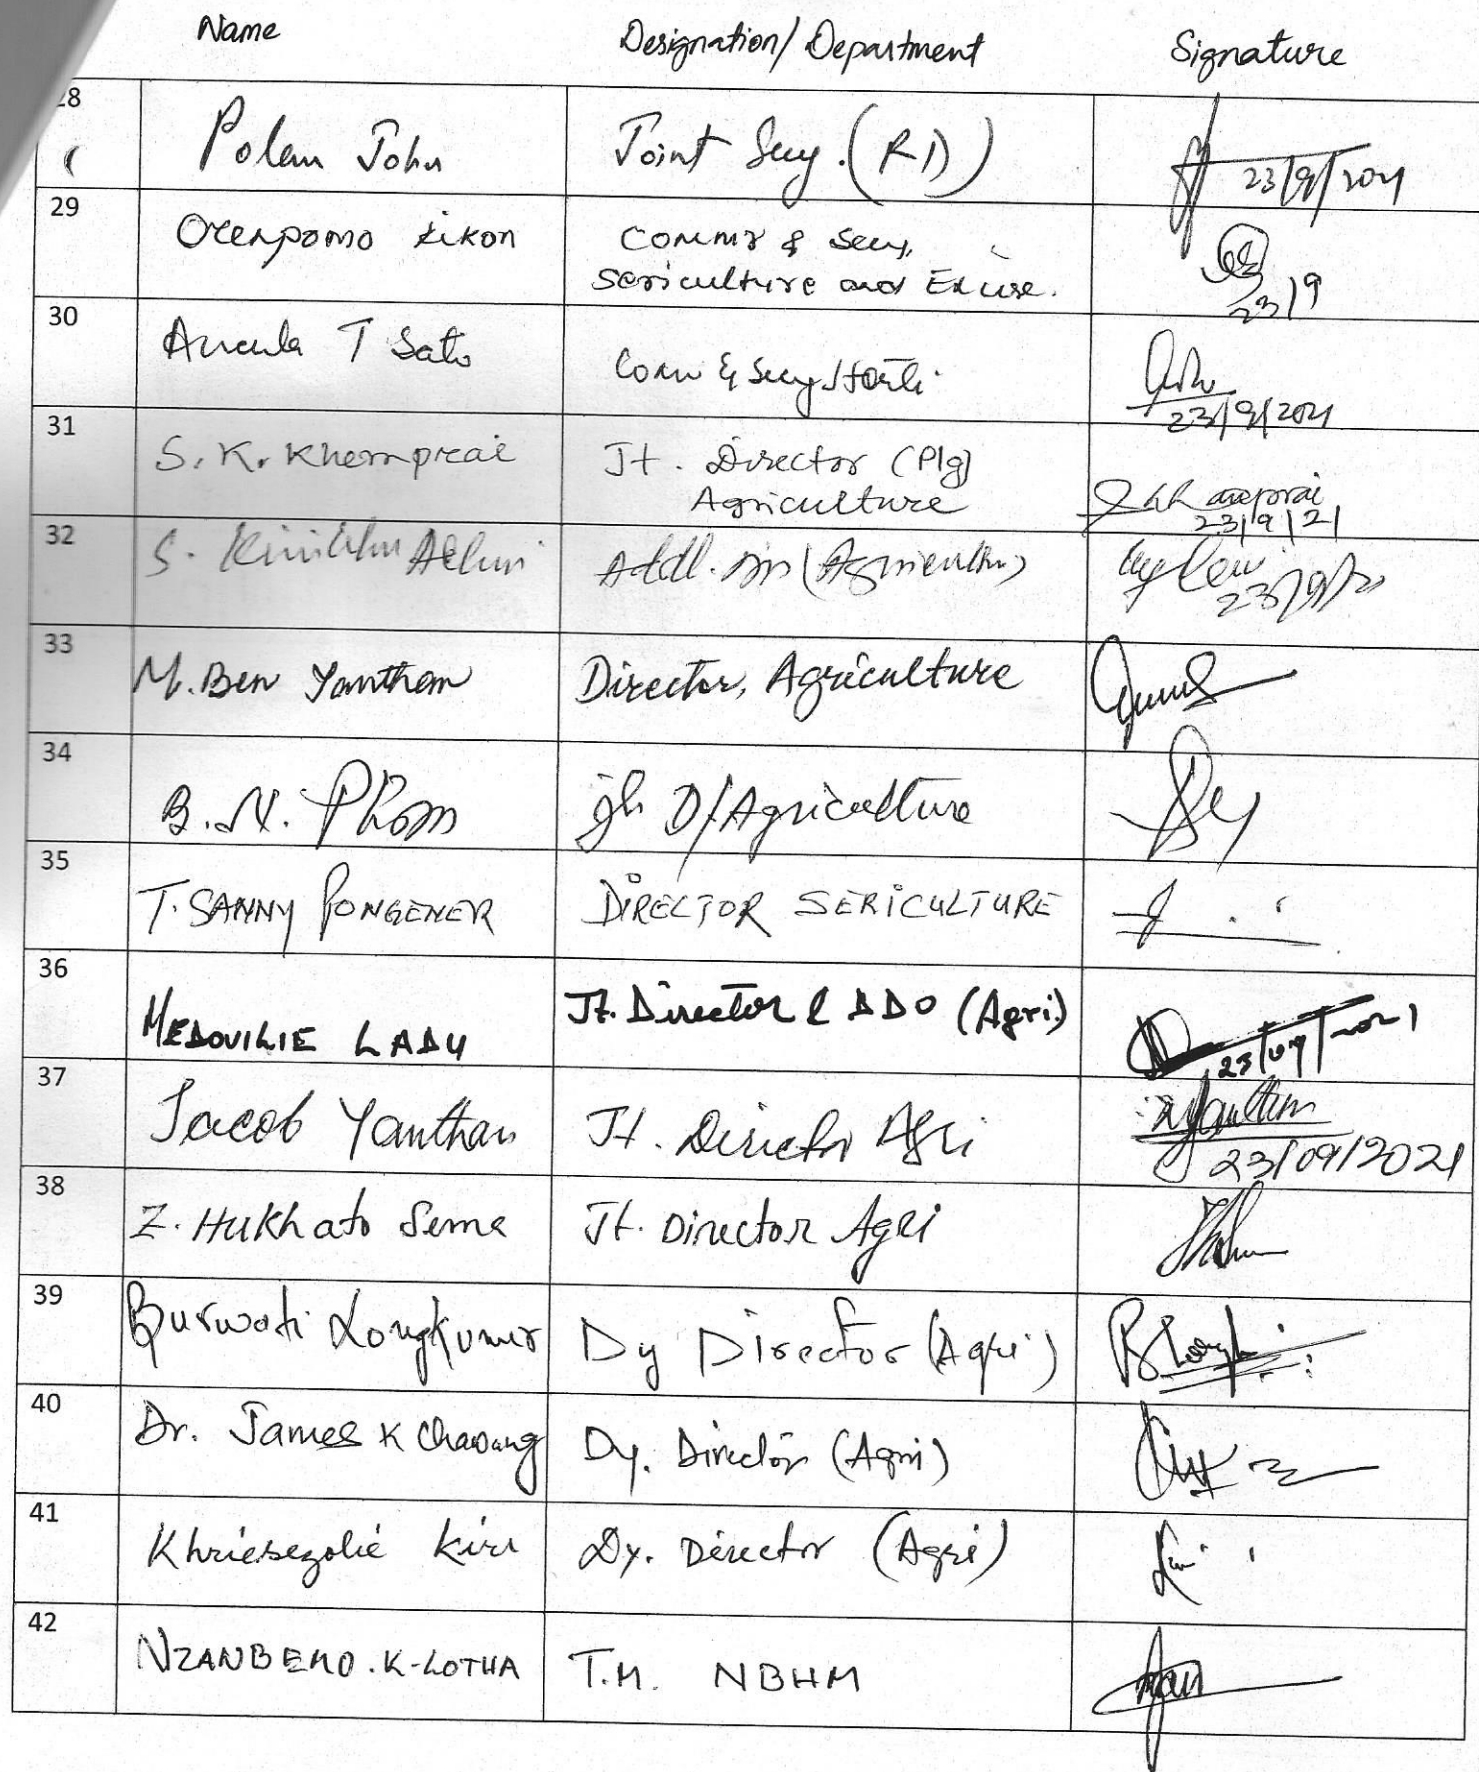 Name Designation/Department Signature
28 Polan John Joint Secy. (RD) 23/9/2021
29 Orenpomo Kikon Commr & Secy,
Sericulture and Excise. 23/9
30 T Sato Com & Secy Horti 23/9/2021
31 S. K. Khemprai Jt. Director (Plg)
Agriculture
23/9/21
32 S. Addl. Dir (Agriculture) 23/9/21
33 M. Ben Yanthan Director, Agriculture
34 B. N. Phom D/Agriculture
35 T. SANNY PONGENER DIRECTOR SERICULTURE
36 MEDOVILIE LADU Jt. Director & DDO (Agri.) 23/09/2021
37 Jacob Yanthan Jt. Director Agri Yanthan
23/09/2021
38 Z. Hukhato Sema Jt. Director Agri
39 Burwati Longkumer Dy Director (Agri)
40 Dr. James K Chaoang Dy. Director (Agri)
41 Khriesezolie Kiri Dy. Director (Agri)
42 NZANBEMO. K-LOTHA T.M. NBHM